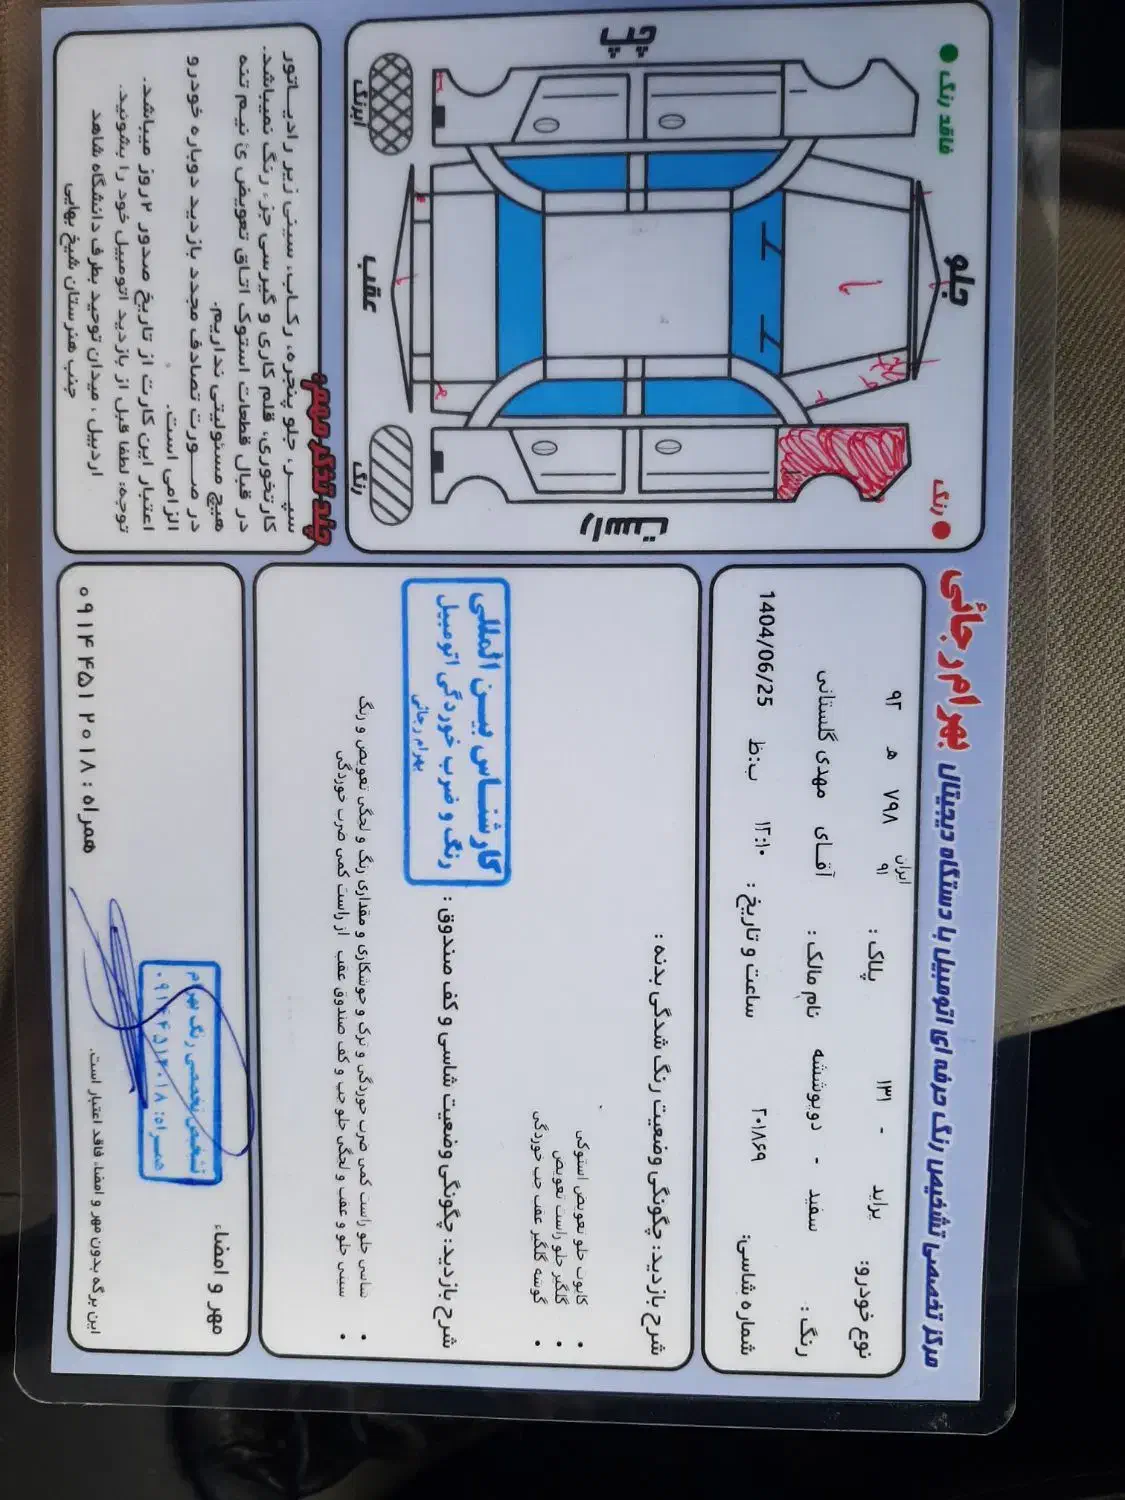 مرکز تخصصی تشخیص رنگ حرفه ای اتومبیل با دستگاه دیجیتال بهرام رجائی
نوع خودرو: پراید - ۱۳۱ پلاک : ایران ۹۱ ۷۹۸ ه ۹۲
رنگ : سفید - دوپوششه نام مالک : آقای مهدی گلستانی
شماره شاسی: ۲۰۱۸۶۹ ساعت و تاریخ : ۱۲:۱۰ ب:ظ 1404/06/25
شرح بازدید: چگونگی وضعیت رنگ شدگی بدنه :
کاپوت جلو تعویض استوکی
• گلگیر جلو راست تعویض
• گوشه گلگیر عقب چپ خوردگی
شرح بازدید: چگونگی وضعیت شاسی و کف صندوق :
کارشناس بین المللی
رنگ و ضرب خوردگی اتومبیل
بهرام رجائی
• شاسی جلو راست کمی ضرب خوردگی و ترک و جوشکاری و مقداری رنگ و لچکی تعویض و رنگ
• سینی جلو و عقب و لچکی جلو چپ و کف صندوق عقب از راست کمی ضرب خوردگی
مهر و امضاء
تشخیص تخصصی رنگ بهرام
همراه: ۰۹۱۴۴۵۱۲۰۱۸
این برگه بدون مهر و امضاء فاقد اعتبار است.
همراه: ۰۹۱۴ ۴۵۱ ۲۰۱۸
فاقد رنگ
جلو
رنگ
چپ
راست
عقب
ابرنگ
رنگ
چند تذکر مهم:
سپر، جلو پنجره، رکاب، سینی زیر رادیاتور
کارتخوری، قلم کاری و گیرسی جزء رنگ نمیباشد.
در قبال قطعات استوک اتاق تعویض ی نیم تنه
هیچ مسئولیتی نداریم.
در صورت تصادف مجدد بازدید دوباره خودرو
الزامی است.
اعتبار این کارت از تاریخ صدور ۲ روز میباشد.
توجه: لطفا قبل از بازدید اتومبیل خود را بشوئید.
اردبیل ، میدان توحید بطرف دانشگاه شاهد
جنب هنرستان شیخ بهایی